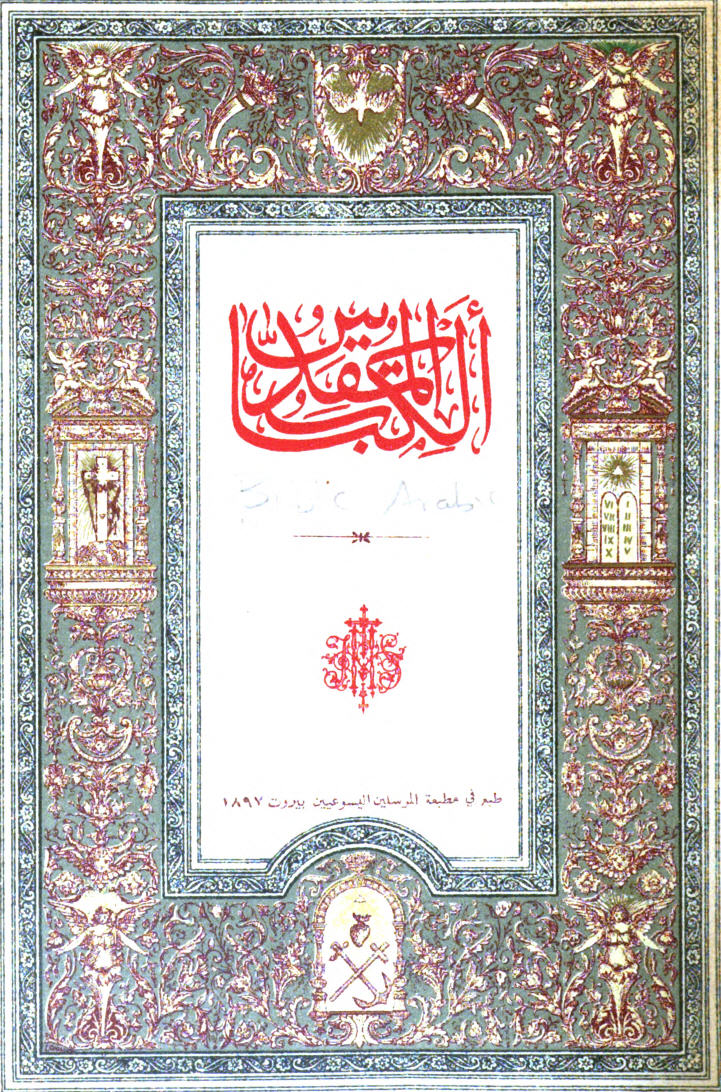 ألكتاب المقدس
Bible Arabic
IHS
طبع في مطبعة المرسلين اليسوعيين بيروت ١٨٩٧
VI I
VII II
VIII III
IX IV
X V